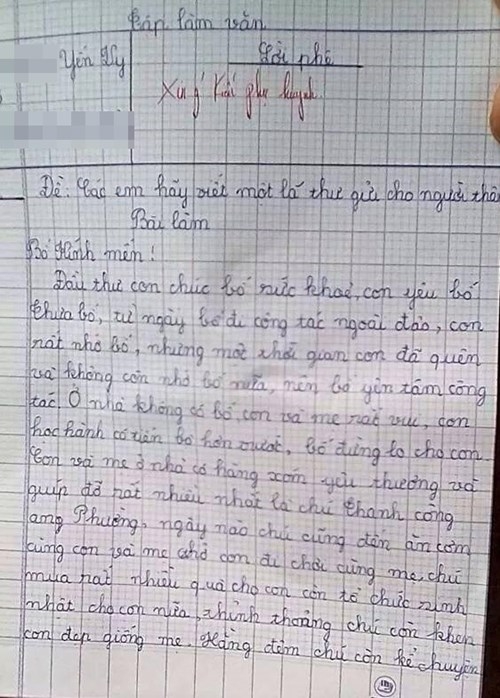 Tập làm văn
Yến Vy
Lời phê
Xin ý kiến phụ huynh.
Đề: Các em hãy viết một lá thư gửi cho người thân
Bài làm
Bố Kính mến!
Đầu thư con chúc bố sức khoẻ, con yêu bố
thưa bố, từ ngày bố đi công tác ngoài đảo, con
rất nhớ bố, nhưng một thời gian con đã quên
và không còn nhớ bố nữa, nên bố yên tâm công
tác. Ở nhà không có bố, con và mẹ rất vui, con
học hành có tiến bộ hơn trước, bố đừng lo cho con.
Con và mẹ ở nhà có hàng xóm yêu thương và
giúp đỡ rất nhiều nhất là chú Thanh công
ang Phường, ngày nào chú cũng đến ăn cơm
cùng con và mẹ chở con đi chơi cùng mẹ, chú
mua rất nhiều quà cho con còn tổ chức sinh
nhật cho con nữa, thỉnh thoảng chú còn khen
con đẹp giống mẹ. Hằng đêm chú còn kể chuyện